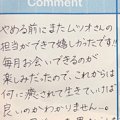 Comment
やめる前にまたムツオさんの
担当ができて嬉しかったです!!
毎月お会いできるのが
楽しみだったので、これからは
何に癒されて生きていけば
良いのかわかりません。